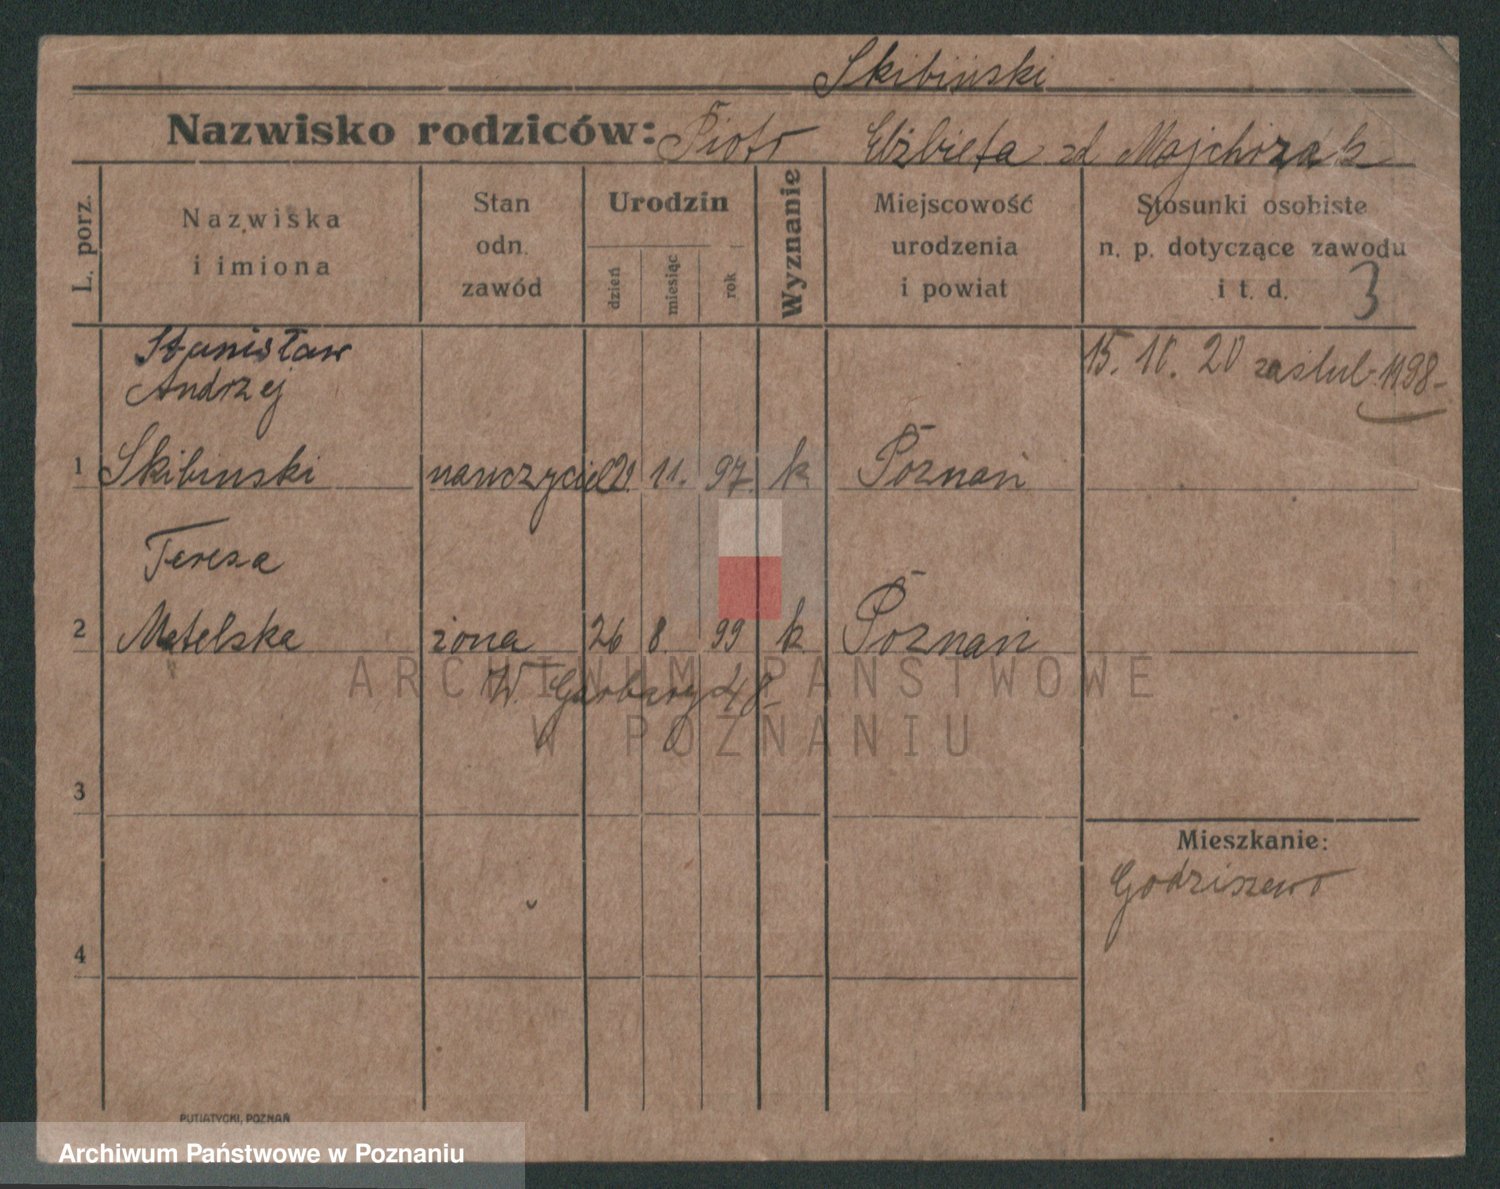 Skibiński
Nazwisko rodziców: Piotr Elżbieta zd Majchrzak
L. porz.
Nazwiska
i imiona
Stan
odn.
zawód
Urodzin
dzień
miesiąc
rok
Wyznanie
Miejscowość
urodzenia
i powiat
Stosunki osobiste
n. p. dotyczące zawodu
i t. d.
3
Stanisław
Andrzej
15. 10. 20 zaślub. 1198-
1 Skibinski nauczyciel 29. 11. 97. k Poznań
Teresa
2 Matelska żona 26 8. 99 k Poznań
W. Garbary 48-
ARCHIWUM PAŃSTWOWE
W POZNANIU
3
Mieszkanie:
Godziszewo
4
PUTIATYCKI, POZNAŃ
Archiwum Państwowe w Poznaniu